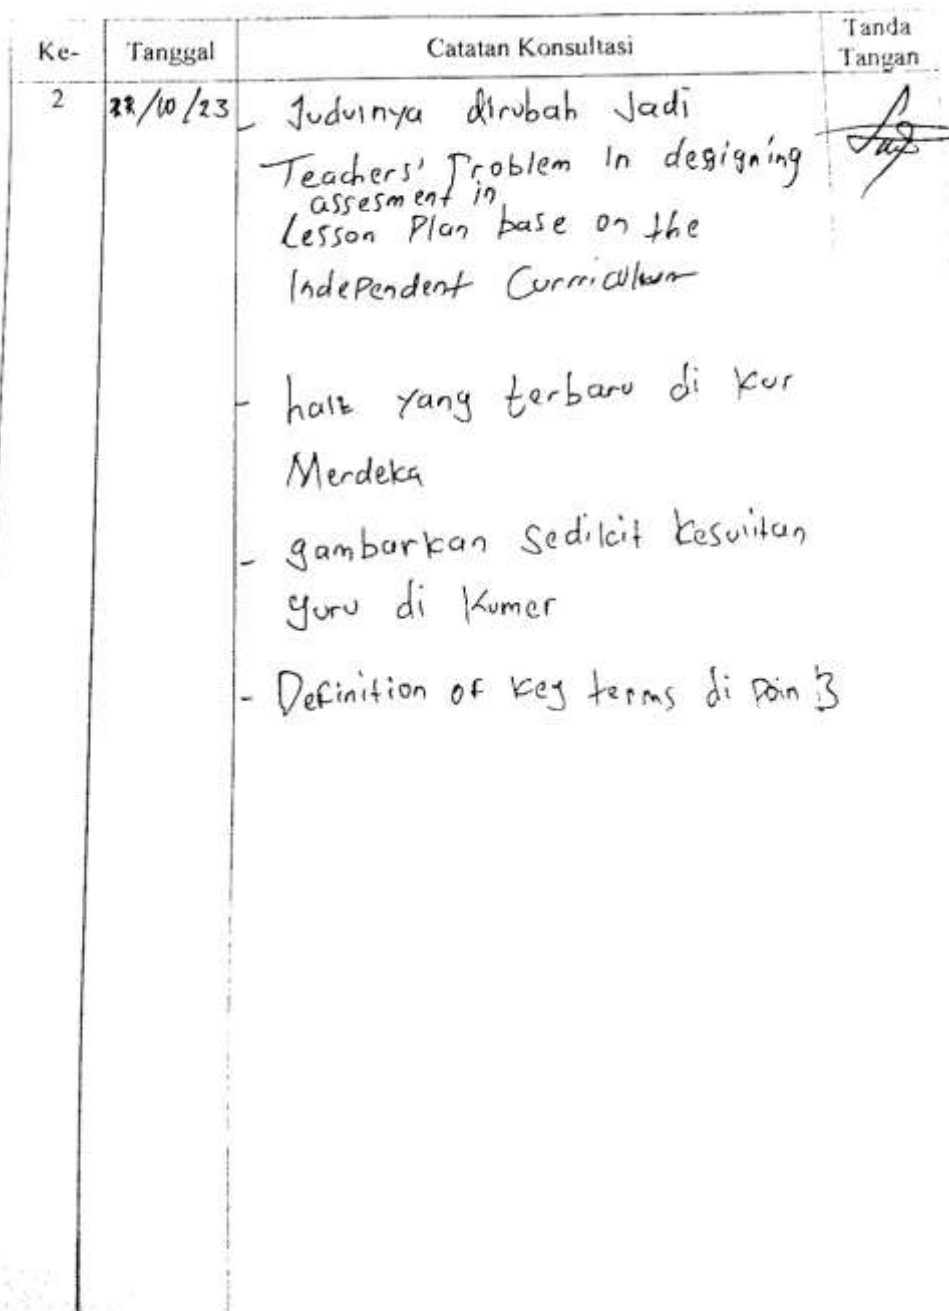 Ke- Tanggal Catatan Konsultasi Tanda Tangan
2 /10/23 - Judulnya dirubah Jadi
Teachers' Problem In designing
assesment in
Lesson Plan base on the
Independent Curriculum
- hal2 yang terbaru di Kur
Merdeka
- gambarkan Sedikit Kesulitan
guru di Kumer
- Definition of Key terms di Poin 3